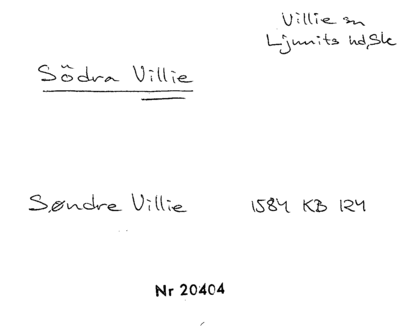 Villie sn
Ljunits hd, Sk
Södra Villie
Søndre Villie 1584 KB 124
Nr 20404